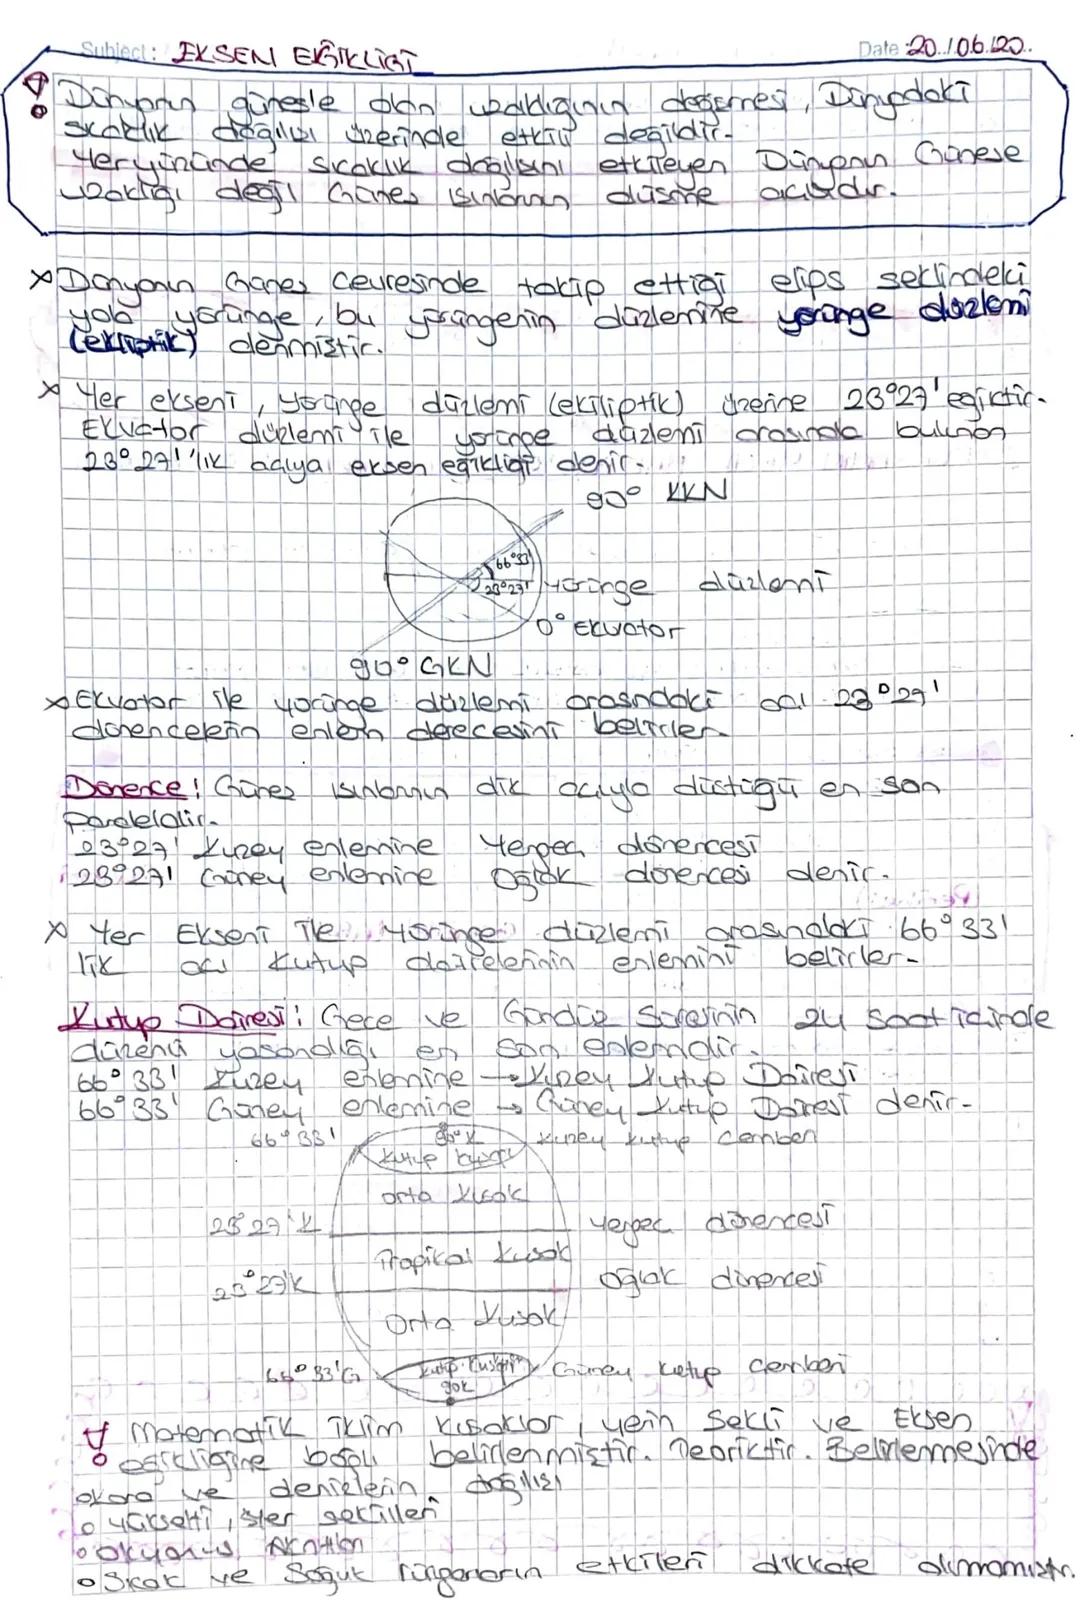 Subject: EKSEN EĞİKLİĞİ Date: 20../.06.120..
Dünyanın güneşle olan uzaklığının değişmesi, Dünyadaki
sıcaklık dağılışı üzerinde etkili değildir.
Yeryüzünde sıcaklık dağılışını etkileyen Dünyanın Güneşe
uzaklığı değil Güneş ışınlarının düşme açısıdır.
x Dünyanın Güneş Çevresinde takip ettiği elips şeklindeki
yola yörünge, bu yörüngenin düzlemine yörünge düzlemi
(ekliptik) denmiştir.
x Yer ekseni, yörünge düzlemi (ekliptik) üzerine 23°27' eğiktir.
Ekvator düzlemi ile yörünge düzlemi arasında bulunan
23°27''lık açıya eksen eğikliği denir.
90° KKN
66°33'
23°27' Yörünge düzlemi
0° Ekvator
90° GKN
x Ekvator ile yörünge düzlemi arasındaki açı 23°27'
dönencelerin enlem derecesini belirler.
Dönence! Güneş ışınlarının dik açıyla düştüğü en son
paraleldir.
23°27' Kuzey enlemine Yengeç dönencesi
23°27' Güney enlemine Oğlak dönencesi denir.
x Yer Ekseni ile Yörünge düzlemi arasındaki 66°33'
lik açı Kutup dairelerinin enlemini belirler.
Kutup Dairesi: Gece ve Gündüz Süresinin 24 Saat içinde
düzenli yaşandığı en son enlemdir.
66°33' Kuzey enlemine → Kuzey Kutup Dairesi
66°33' Güney enlemine → Güney Kutup Dairesi denir.
66°33' 90°K Kuzey kutup Çemberi
Kutup kuşağı
Orta Kuşak
23°27'K Yengeç dönencesi
Tropikal Kuşak
23°27'K Oğlak dönencesi
Orta Kuşak
66°33'G Kutup Kuşağı Güney kutup Çemberi
90K
Matematik iklim Kuşaklar, yerin Şekli ve Eksen
eğikliğine bağlı belirlenmiştir. Teoriktir. Belirlemesinde
okara ve denizlerin dağılışı
o yükselti, yer şekilleri
o okyanus Akıntıları
o Sıcak ve Soğuk rüzgarların etkileri dikkate alınmamıştır.